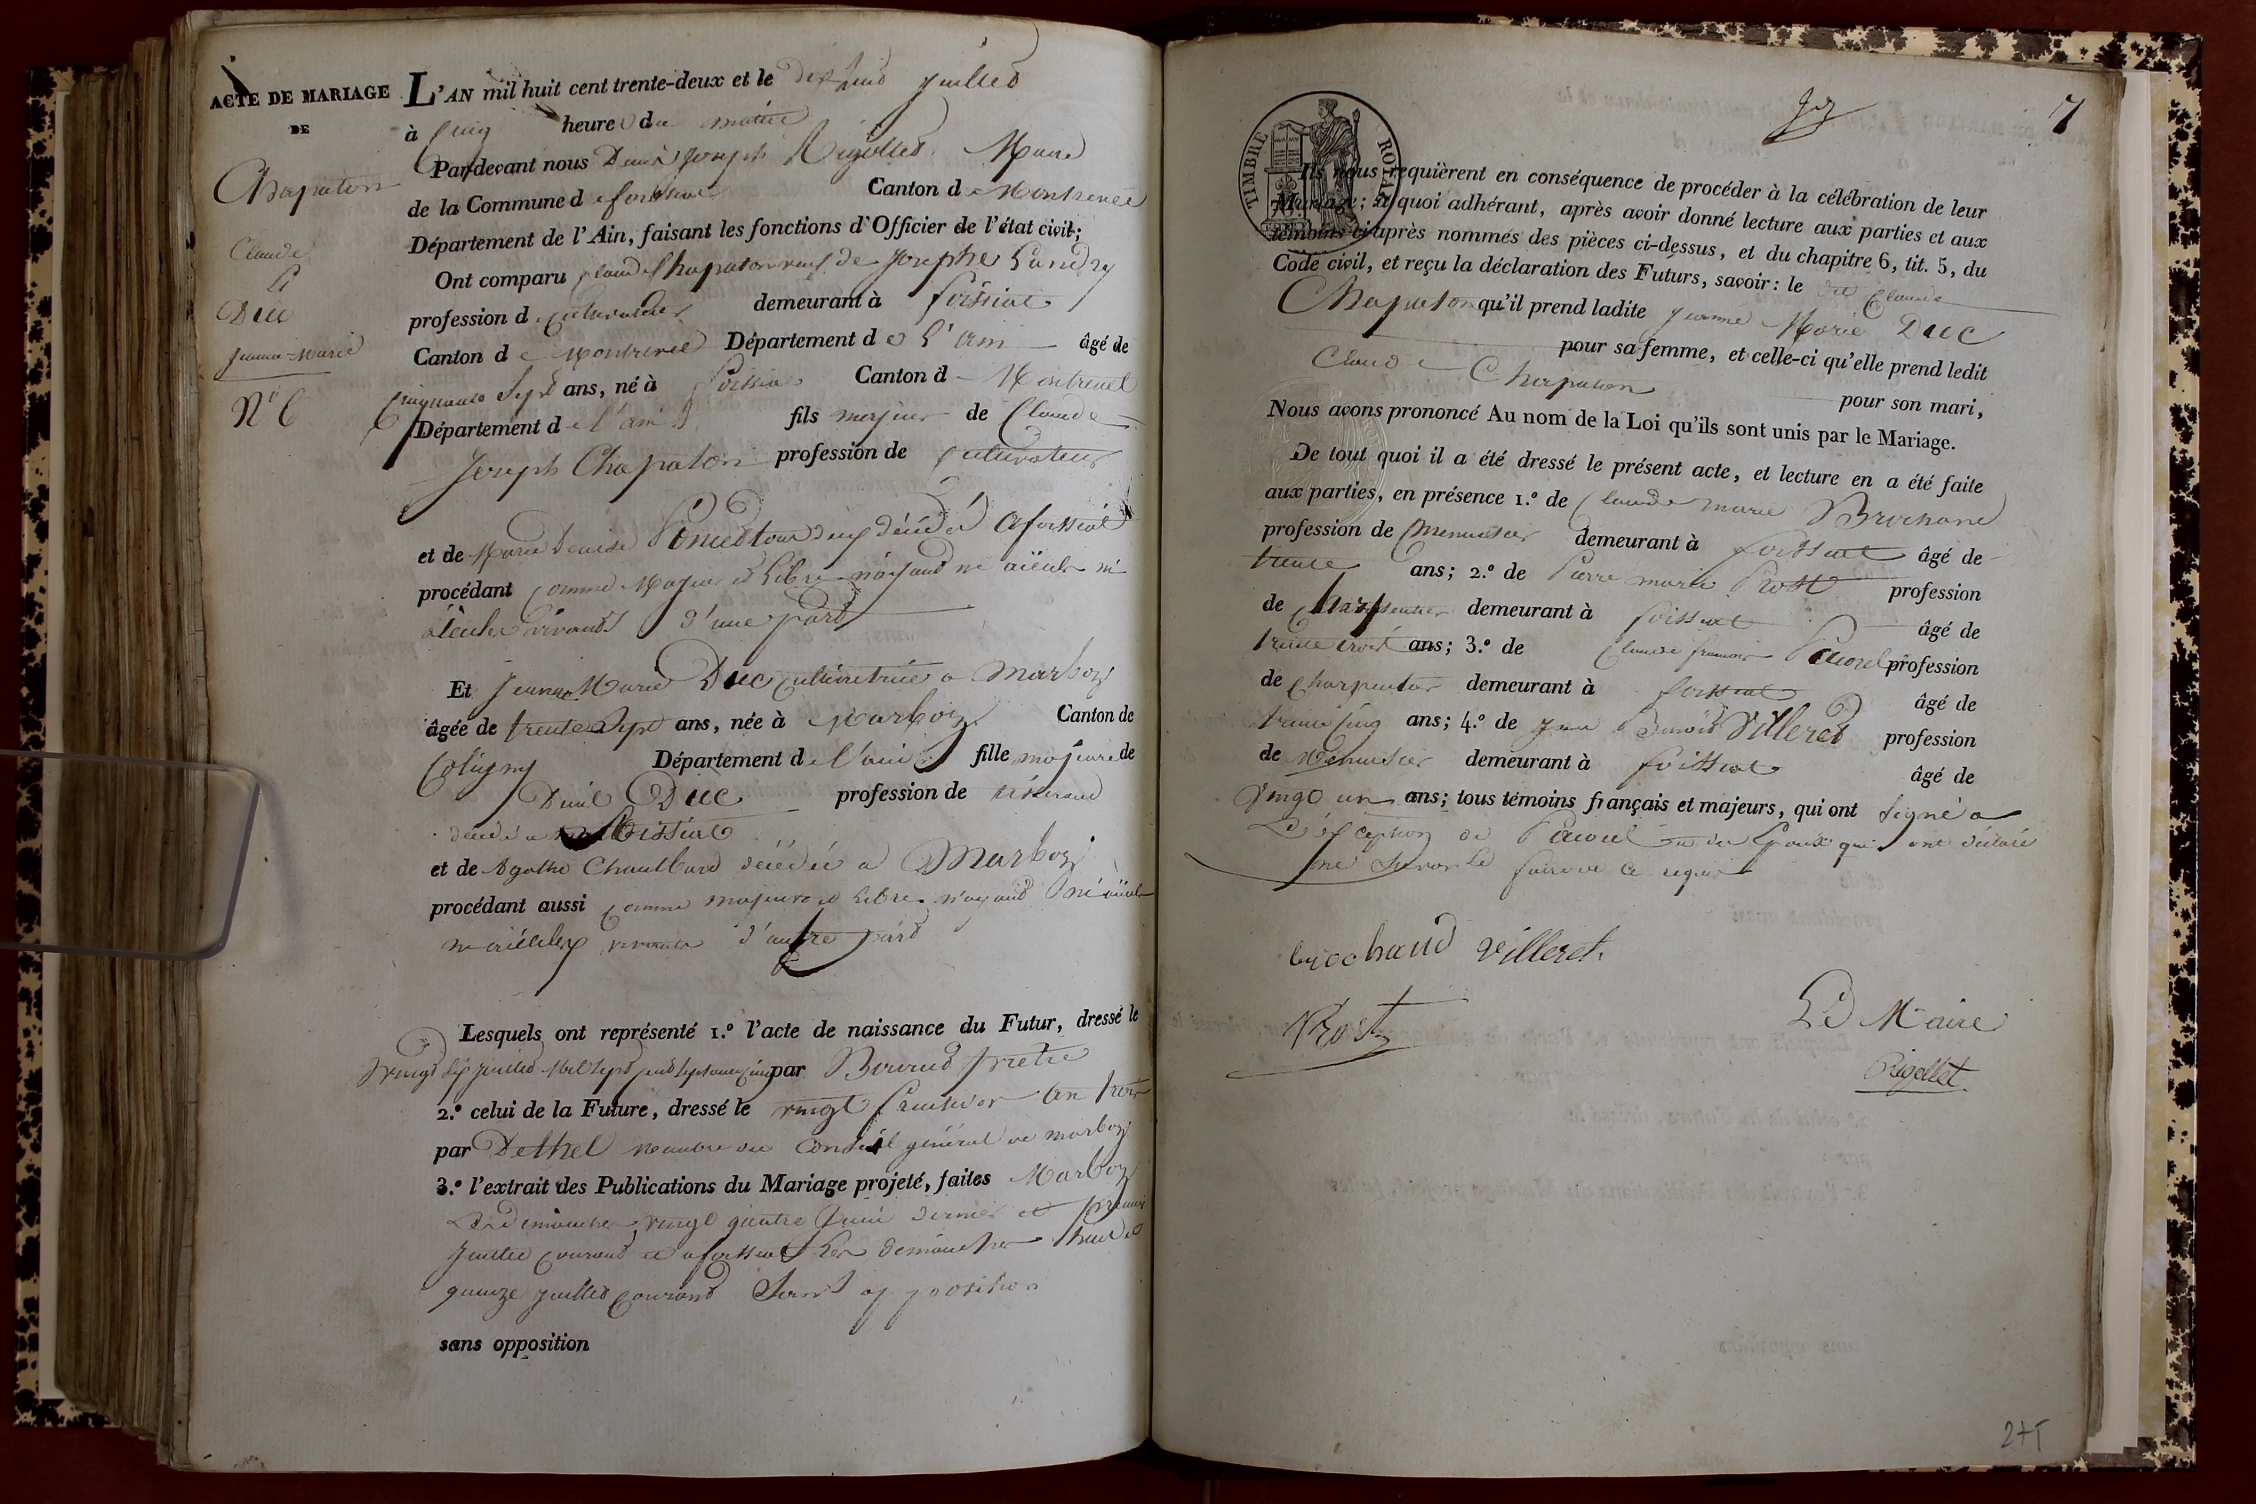 ACTE DE MARIAGE
DE
Chapaton
Claude
&
Duc
Jeanne-Marie
N° 6
L'AN mil huit cent trente-deux et le dix huit juillet
à Cinq heure du matin
Pardevant nous Denis Joseph Rigollet Maire
de la Commune de foissiat Canton de Montrevel
Département de l'Ain, faisant les fonctions d'Officier de l'état civil;
Ont comparu Claude Chapaton veuf de Josephe Landry
profession de Cultivateur demeurant à foissiat
Canton de Montrevel Département de L'ain âgé de
Cinquante Sept ans, né à foissiat Canton d Montrevel
Département de l'ain fils majeur de Claude
Joseph Chapaton profession de Cultivateur
et de Marie Denise tous deux décédés a foissiat
procédant Comme Majeur et Libre n'ayant ni aïeuls ni
aïeules vivants d'une part
Et Jeanne Marie Duc Cultivatrice a Marboz
âgée de trente Sept ans, née à Marboz Canton de
Coligny Département de l'ain fille majeure de
Denis Duc profession de tisserand
décédé a foissiat
et de Agathe décédée a Marboz
procédant aussi Comme majeure et Libre n'ayant ni aïeuls
ni aïeules vivants d'autre part
Lesquels ont représenté 1.° l'acte de naissance du Futur, dressé le
vingt Six juillet Mil Sept Cent Septante Cinq par prêtre
2.° celui de la Future, dressé le vingt an trois
par Dethel membre du Conseil général de marboz
3.° l'extrait des Publications du Mariage projeté, faites Marboz
Les dimanches vingt quatre Juin dernier et premier
Juillet Courant et a foissiat Les dimanches huit et
quinze juillet Courant Sans opposition
sans opposition
7
TIMBRE ROYAL
Ils nous requièrent en conséquence de procéder à la célébration de leur
Mariage; à quoi adhérant, après avoir donné lecture aux parties et aux
témoins ci-après nommés des pièces ci-dessus, et du chapitre 6, tit. 5, du
Code civil, et reçu la déclaration des Futurs, savoir: le dit Claude
Chapaton qu'il prend ladite Jeanne Marie Duc
pour sa femme, et celle-ci qu'elle prend ledit
Claude Chapaton
pour son mari,
Nous avons prononcé Au nom de la Loi qu'ils sont unis par le Mariage.
De tout quoi il a été dressé le présent acte, et lecture en a été faite
aux parties, en présence 1.° de Claude marie Brochand
profession de menuisier demeurant à foissiat âgé de
trente ans; 2.° de Pierre marie Prost profession
de Charpentier demeurant à foissiat âgé de
trente trois ans; 3.° de Claude françois profession
de Charpentier demeurant à foissiat âgé de
trente Cinq ans; 4.° de Jean Benoit Villeret profession
de Menuisier demeurant à foissiat âgé de
Vingt un ans; tous témoins français et majeurs, qui ont Signé a
L'éxception de et des Epoux qui ont déclaré
ne Savoir Le faire de ce requis
brochaud Villeret.
Prost
Le Maire
Rigollet
275